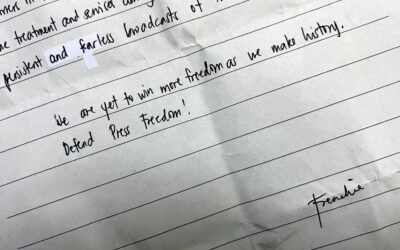 ners in
ae treatment and services amo
persistent and fearless broadcasts of
We are yet to win more freedom as we make history.
Defend Press Freedom!
frenchie